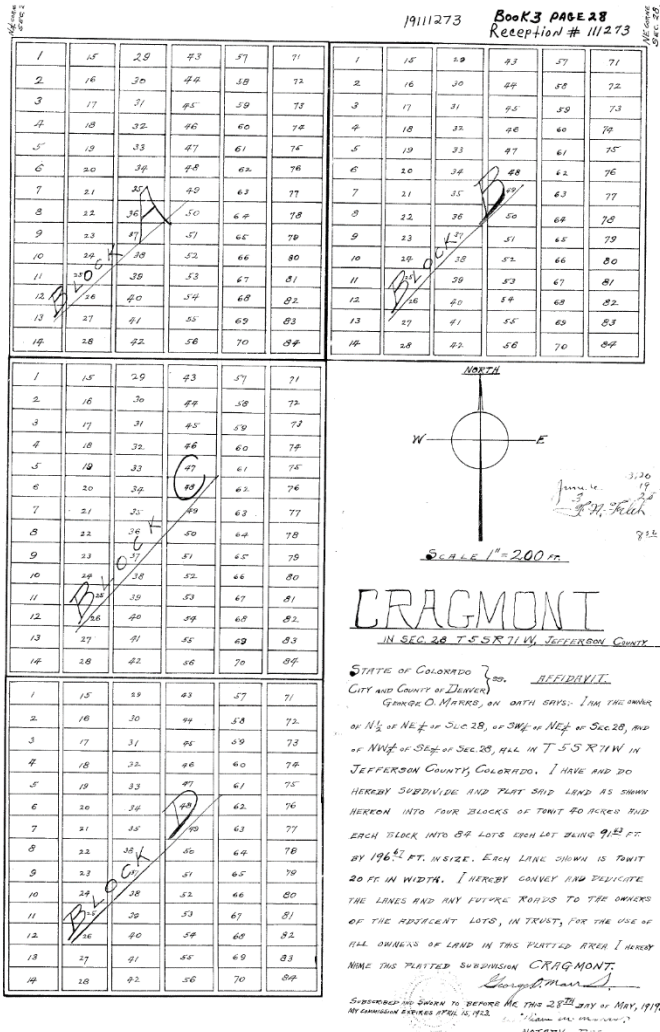 19111273
BOOK 3 PAGE 28
Reception # 111273
NE CORNE
SEC. 28.
1 15 29 43 57 71
2 16 30 44 58 72
3 17 31 45 59 73
4 18 32 46 60 74
5 19 33 47 61 75
6 20 34 48 62 76
7 21 35 49 63 77
8 22 36 50 64 78
9 23 37 51 65 79
10 24 38 52 66 80
11 25 39 53 67 81
12 26 40 54 68 82
13 27 41 55 69 83
14 28 42 56 70 84
BLOCK A
1 15 29 43 57 71
2 16 30 44 58 72
3 17 31 45 59 73
4 18 32 46 60 74
5 19 33 47 61 75
6 20 34 48 62 76
7 21 35 49 63 77
8 22 36 50 64 78
9 23 37 51 65 79
10 24 38 52 66 80
11 25 39 53 67 81
12 26 40 54 68 82
13 27 41 55 69 83
14 28 42 56 70 84
BLOCK B
1 15 29 43 57 71
2 16 30 44 58 72
3 17 31 45 59 73
4 18 32 46 60 74
5 19 33 47 61 75
6 20 34 48 62 76
7 21 35 49 63 77
8 22 36 50 64 78
9 23 37 51 65 79
10 24 38 52 66 80
11 25 39 53 67 81
12 26 40 54 68 82
13 27 41 55 69 83
14 28 42 56 70 84
BLOCK C
1 15 29 43 57 71
2 16 30 44 58 72
3 17 31 45 59 73
4 18 32 46 60 74
5 19 33 47 61 75
6 20 34 48 62 76
7 21 35 49 63 77
8 22 36 50 64 78
9 23 37 51 65 79
10 24 38 52 66 80
11 25 39 53 67 81
12 26 40 54 68 82
13 27 41 55 69 83
14 28 42 56 70 84
BLOCK D
NORTH
W E
SCALE 1" = 200 FT.
CRAGMONT
IN SEC. 28 T 5 S R 71 W, JEFFERSON COUNTY
STATE OF COLORADO } SS. AFFIDAVIT.
CITY AND COUNTY OF DENVER
GEORGE O. MARRS, ON OATH SAYS: I AM THE OWNER
OF N½ OF NE¼ OF SEC 28, OF SW¼ OF NE¼ OF SEC. 28, AND
OF NW¼ OF SE¼ OF SEC. 28, ALL IN T 5 S R 71 W IN
JEFFERSON COUNTY, COLORADO. I HAVE AND DO
HEREBY SUBDIVIDE AND PLAT SAID LAND AS SHOWN
HEREON INTO FOUR BLOCKS OF TOWIT 40 ACRES AND
EACH BLOCK INTO 84 LOTS EACH LOT BEING 91 FT.
BY 196.67 FT. IN SIZE. EACH LANE SHOWN IS TOWIT
20 FT. IN WIDTH. I HEREBY CONVEY AND DEDICATE
THE LANES AND ANY FUTURE ROADS TO THE OWNERS
OF THE ADJACENT LOTS, IN TRUST, FOR THE USE OF
ALL OWNERS OF LAND IN THIS PLATTED AREA I HEREBY
NAME THIS PLATTED SUBDIVISION CRAGMONT.
George O. Marrs
SUBSCRIBED AND SWORN TO BEFORE ME THIS 28TH DAY OF MAY, 1919.
MY COMMISSION EXPIRES APRIL 15, 1923.
NOTARY